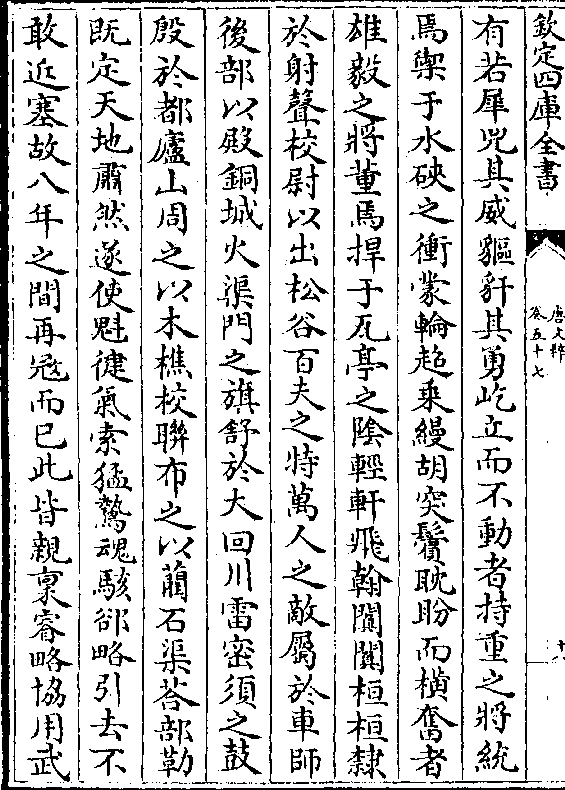 欽定四庫全書
唐文粹
卷五十七
十八
有若犀兕其威貙豻其勇屹立而不動者持重之將統
焉禦于水硤之衝蒙輪趫乘縵胡突鬢耽盼而橫奮者
雄毅之將董焉捍于瓦亭之隂輕軒飛翰闐闐桓桓隸
於射聲校尉以出松谷百夫之特萬人之敵屬於車師
後部以殿銅城火渠門之旗舒於大回川雷密須之鼓
殷於都廬山周之以木樵校聯布之以藺石渠荅部勒
既定天地肅然遂使魁健氣索猛鷙魂駭郤略引去不
敢近塞故八年之間再冦而已此皆親禀睿略協用武